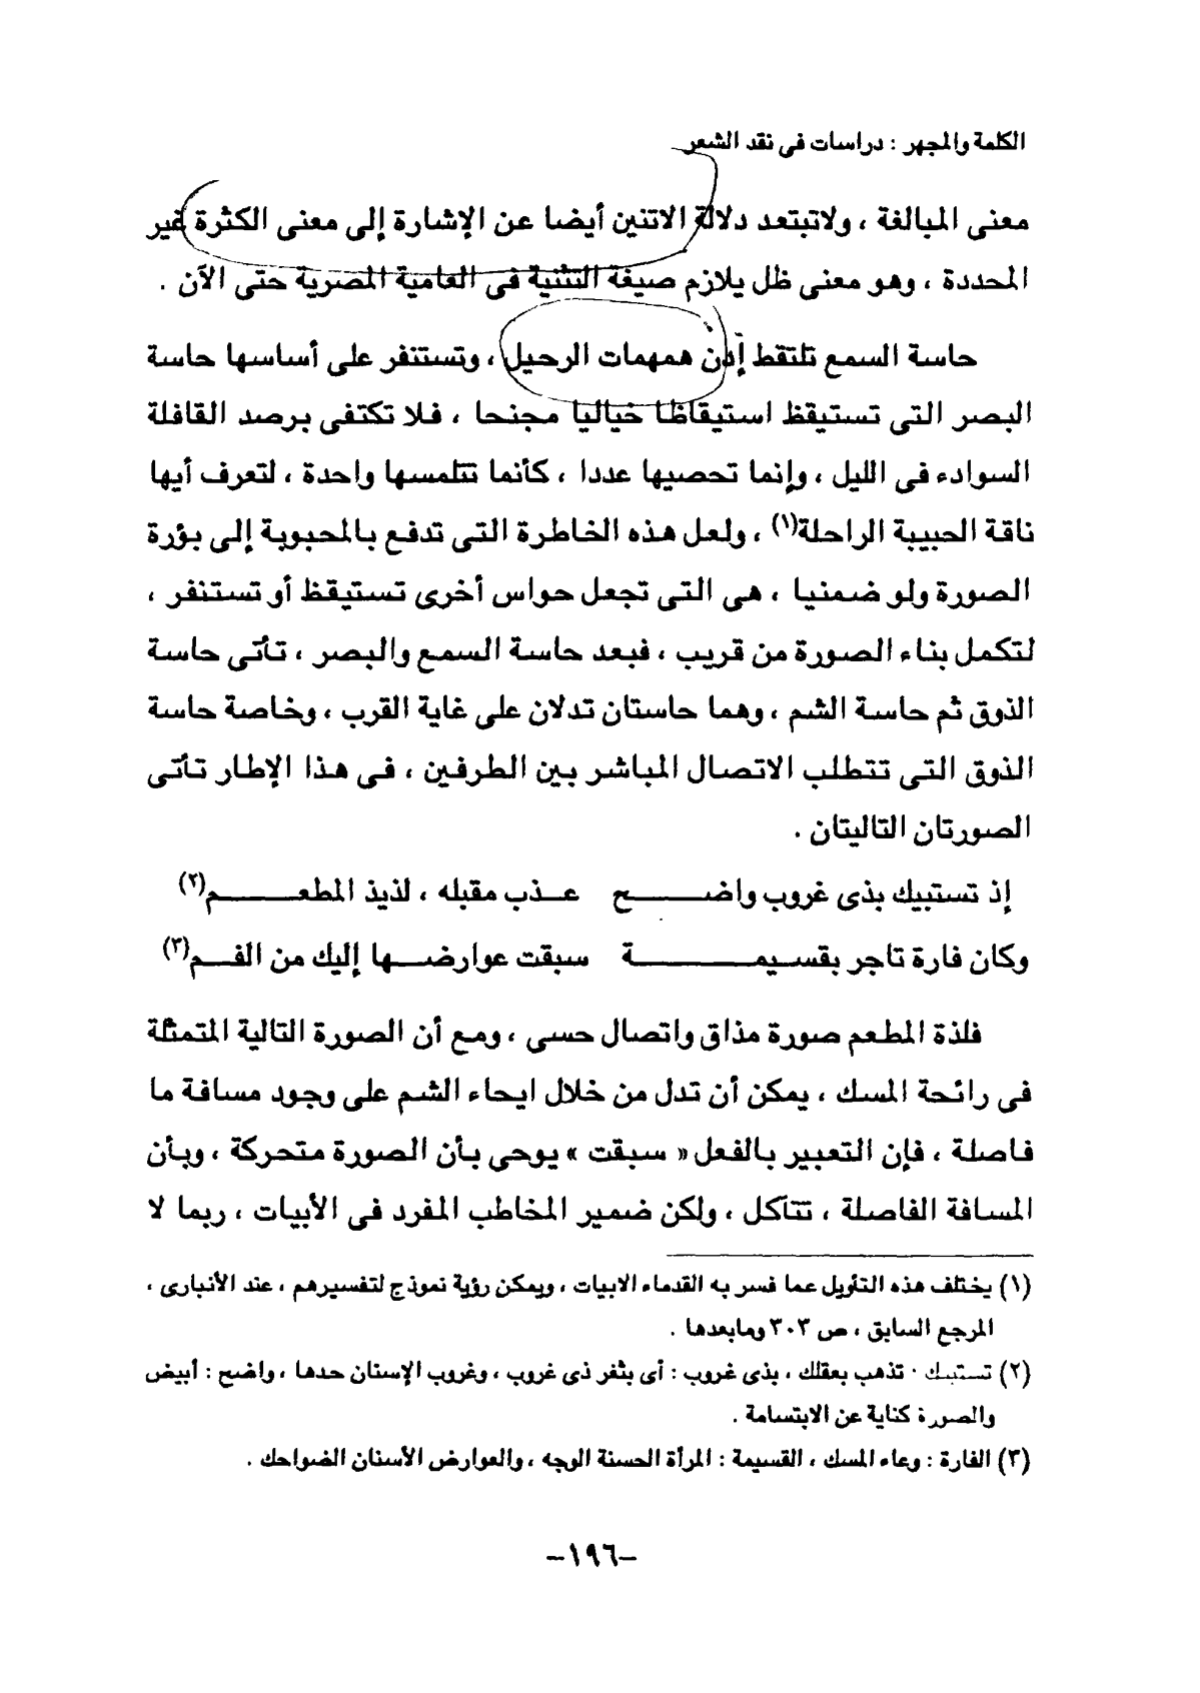 الكلمة والمجهر : دراسات فى نقد الشعر
معنى المبالغة ، ولاتبتعد دلالة الاتنين أيضا عن الإشارة إلى معنى الكثرة غير
المحددة ، وهو معنى ظل يلازم صيغة التثنية فى العامية المصرية حتى الآن .
حاسة السمع تلتقط إذن همهمات الرحيل ، وتستنفر على أساسها حاسة
البصر التى تستيقظ استيقاظا خياليا مجنحا ، فلا تكتفى برصد القافلة
السوادء فى الليل ، وإنما تحصيها عددا ، كأنما تتلمسها واحدة ، لتعرف أيها
ناقة الحبيبة الراحلة(١) ، ولعل هذه الخاطرة التى تدفع بالمحبوبة إلى بؤرة
الصورة ولو ضمنيا ، هى التى تجعل حواس أخرى تستيقظ أو تستنفر ،
لتكمل بناء الصورة من قريب ، فبعد حاسة السمع والبصر ، تأتى حاسة
الذوق ثم حاسة الشم ، وهما حاستان تدلان على غاية القرب ، وخاصة حاسة
الذوق التى تتطلب الاتصال المباشر بين الطرفين ، فى هذا الإطار تأتى
الصورتان التاليتان .
إذ تستبيك بذى غروب واضـــــح عـذب مقبله ، لذيذ المطعـــــم(٢)
وكان فارة تاجر بقسيمـــــــة سبقت عوارضـــها إليك من الفـــم(٣)
فلذة المطعم صورة مذاق واتصال حسى ، ومع أن الصورة التالية المتمثلة
فى رائحة المسك ، يمكن أن تدل من خلال ايحاء الشم على وجود مسافة ما
فاصلة ، فإن التعبير بالفعل « سبقت » يوحى بأن الصورة متحركة ، وبأن
المسافة الفاصلة ، تتآكل ، ولكن ضمير المخاطب المفرد فى الأبيات ، ربما لا
(١) يختلف هذه التأويل عما فسر به القدماء الابيات ، ويمكن رؤية نموذج لتفسيرهم ، عند الأنبارى ،
المرجع السابق ، ص ٣٠٣ ومابعدها .
(٢) تستبيك · تذهب بعقلك ، بذى غروب : أى بثغر ذى غروب ، وغروب الإسنان حدها ، واضح : أبيض
والصورة كناية عن الابتسامة .
(٣) الفارة : وعاء المسك ، القسيمة : المرأة الحسنة الوجه ، والعوارض الأسنان الضواحك .
-١٩٦-